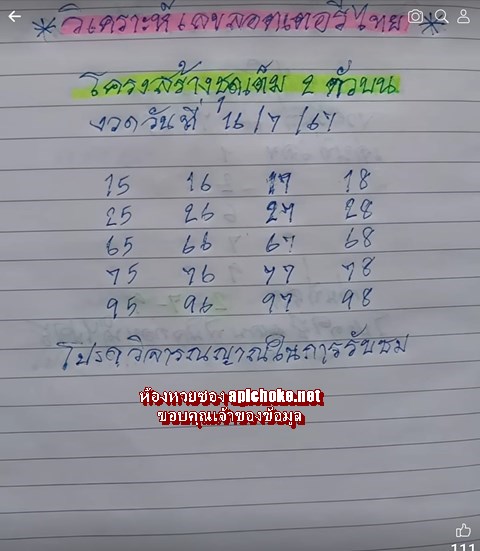 * วิเคราะห์เลขลอตเตอรี่ไทย *
โครงสร้างชุดเต็ม 2 ตัวบน
งวดวันที่ 16/7/67
15 16 17 18
25 26 27 28
65 66 67 68
75 76 77 78
95 96 97 98
โปรดวิจารณญาณในการรับชม
ห้องหวยซอง apichoke.net
ขอบคุณเจ้าของข้อมูล
111